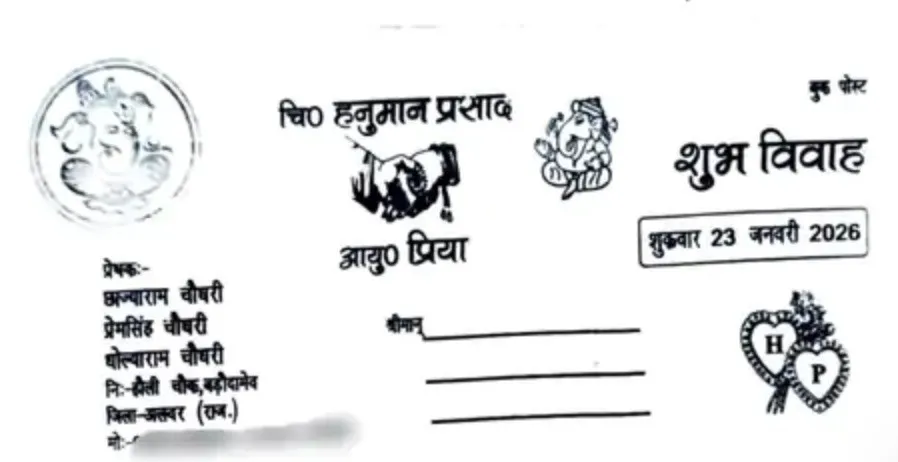 बुक पोस्ट
चि0 हनुमान प्रसाद
शुभ विवाह
शुक्रवार 23 जनवरी 2026
आयु0 प्रिया
प्रेषकः-
छाज्याराम चौधरी
प्रेमसिंह चौधरी
धोल्याराम चौधरी
निः-हौली चौक,बड़ौदामेव
जिला-अलवर (राज.)
मोः-
श्रीमान्
H
P